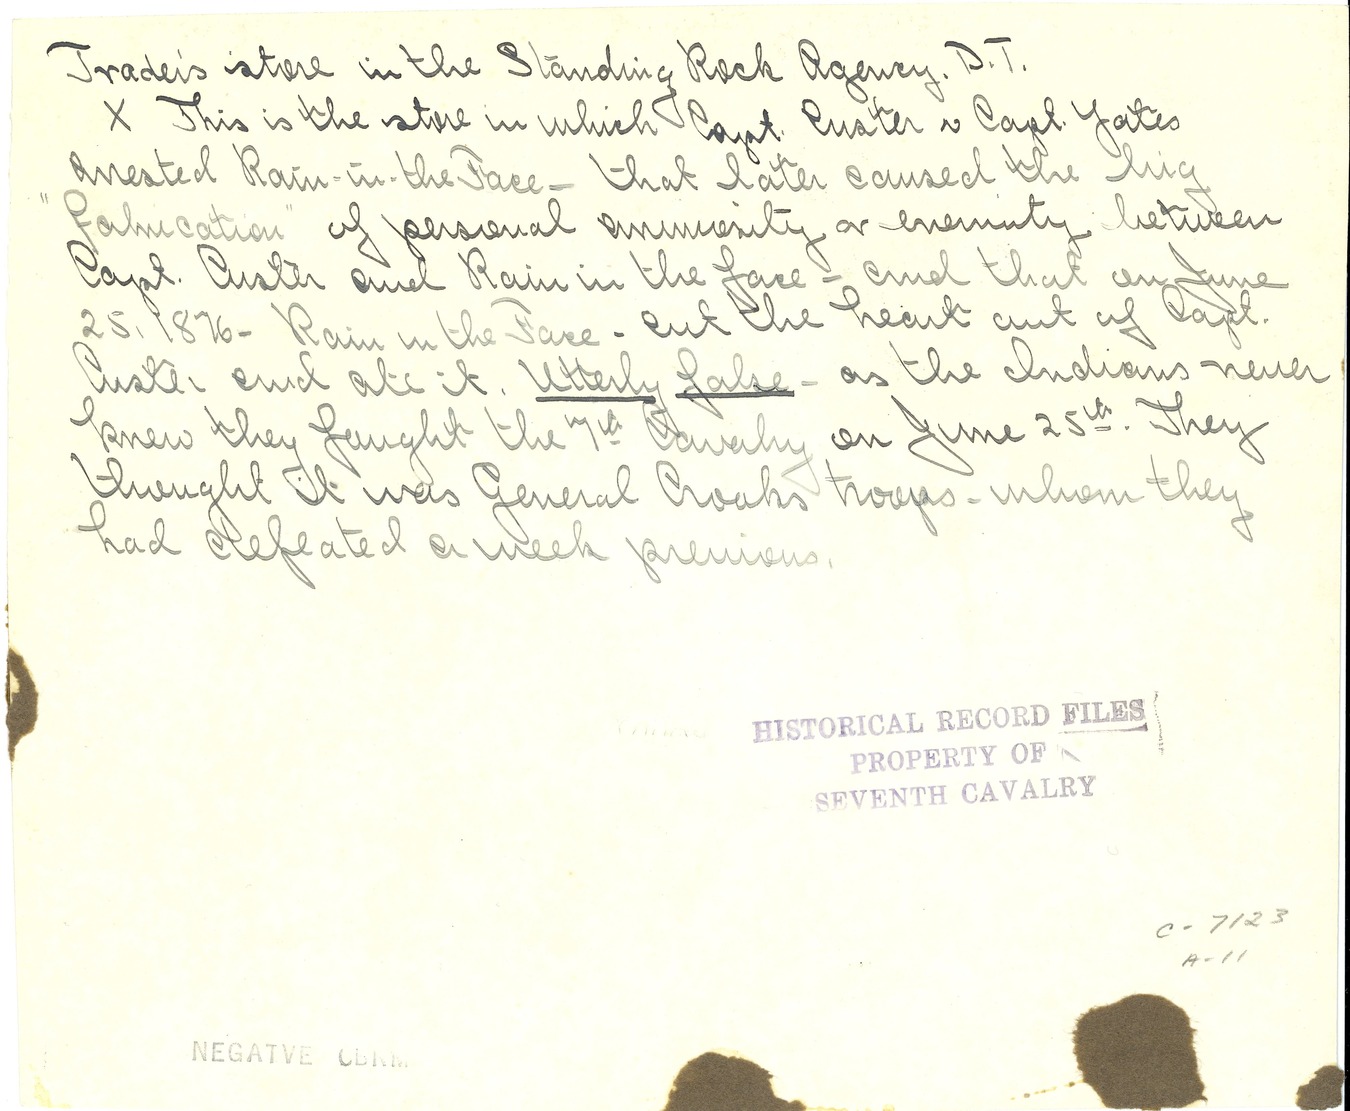 Trader's store in the Standing Rock Agency. D.T.
X This is the store in which Capt. Custer & Capt. Yates
arrested Rain-in-the Face - that later caused the big
"fabrication" of personal animosity or enemity between
Capt. Custer and Rain in the face - and that on June
25, 1876 - Rain in the Face - cut the heart out of Capt.
Custer and ate it. Utterly false - as the Indians never
knew they fought the 7th Cavalry on June 25th. They
thought it was General Crooks troops - whom they
had defeated a week previous.
HISTORICAL RECORD FILES
PROPERTY OF
SEVENTH CAVALRY
C-7123
A-11
NEGATVE